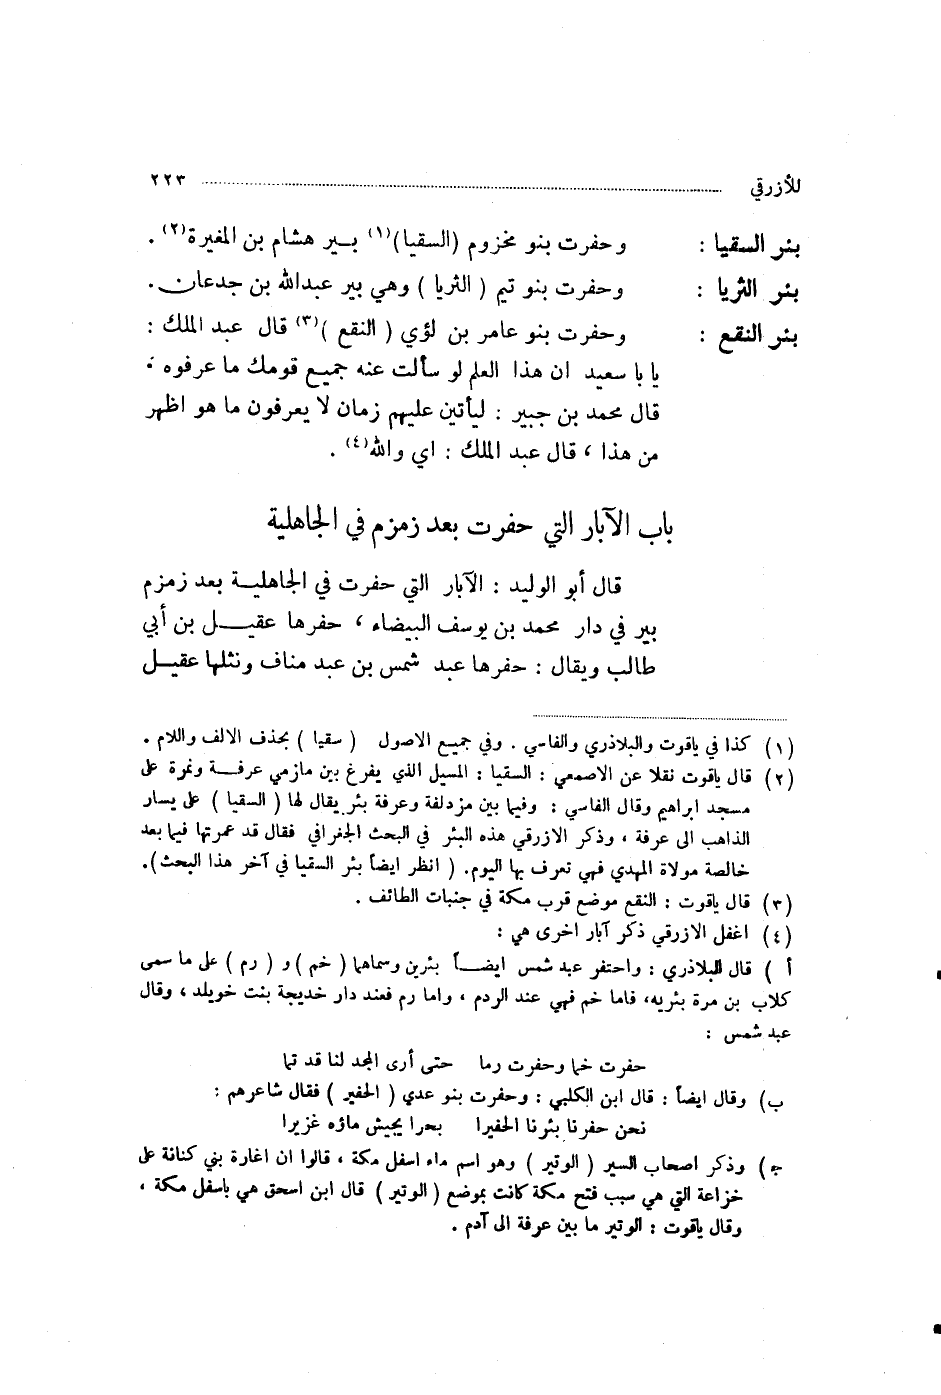 للأزرقي ٢٢٣
بئر السقيا : وحفرت بنو مخزوم (السقيا)(١) بـير هشام بن المغيرة(٢) .
بئر الثريا : وحفرت بنو تيم ( الثريا ) وهي بير عبدالله بن جدعان .
بئر النقع : وحفرت بنو عامر بن لؤي ( النقع )(٣) قال عبد الملك :
يا با سعيد ان هذا العلم لو سألت عنه جميع قومك ما عرفوه ؛
قال محمد بن جبير : ليأتين عليهم زمان لا يعرفون ما هو اظهر
من هذا ، قال عبد الملك : اي والله(٤) .
باب الآبار التي حفرت بعد زمزم في الجاهلية
قال أبو الوليد : الآبار التي حفرت في الجاهليـة بعد زمزم
بير في دار محمد بن يوسف البيضاء ، حفرها عقيـل بن أبي
طالب ويقال : حفرها عبد شمس بن عبد مناف ونثلها عقيـل
(١) كذا في ياقوت والبلاذري والفاسي . وفي جميع الاصول ( سقيا ) بحذف الالف واللام .
(٢) قال ياقوت نقلا عن الاصمعي : السقيا : المسيل الذي يفرغ بين مازمي عرفـة ونمرة على
مسجد ابراهيم وقال الفاسي : وفيما بين مزدلفة وعرفة بئر يقال لها ( السقيا ) على يسار
الذاهب الى عرفة ، وذكر الازرقي هذه البئر في البحث الجغرافي فقال قد عمرتها فيما بعد
خالصة مولاة المهدي فهي تعرف بها اليوم. ( انظر ايضاً بئر السقيا في آخر هذا البحث).
(٣) قال ياقوت : النقع موضع قرب مكة في جنبات الطائف .
(٤) اغفل الازرقي ذكر آبار اخرى هي :
أ ) قال البلاذري : واحتفر عبد شمس ايضـاً بئرين وسماهما ( خم ) و ( رم ) على ما سمى
كلاب بن مرة بئريه، فاما خم فهي عند الردم ، واما رم فعند دار خديجة بنت خويلد ، وقال
عبد شمس :
حفرت خما وحفرت رما حتى أرى المجد لنا قد تما
ب) وقال ايضاً : قال ابن الكلبي : وحفرت بنو عدي ( الحفير ) فقال شاعرهم :
نحن حفرنا بئرنا الحفيرا بحرا يجيش ماؤه غزيرا
ج) وذكر اصحاب السير ( الوتير ) وهو اسم ماء اسفل مكة ، قالوا ان اغارة بني كنانة على
خزاعة التي هي سبب فتح مكة كانت بموضع ( الوتير ) قال ابن اسحق هي باسفل مكة ،
وقال ياقوت : الوتير ما بين عرفة الى آدم .